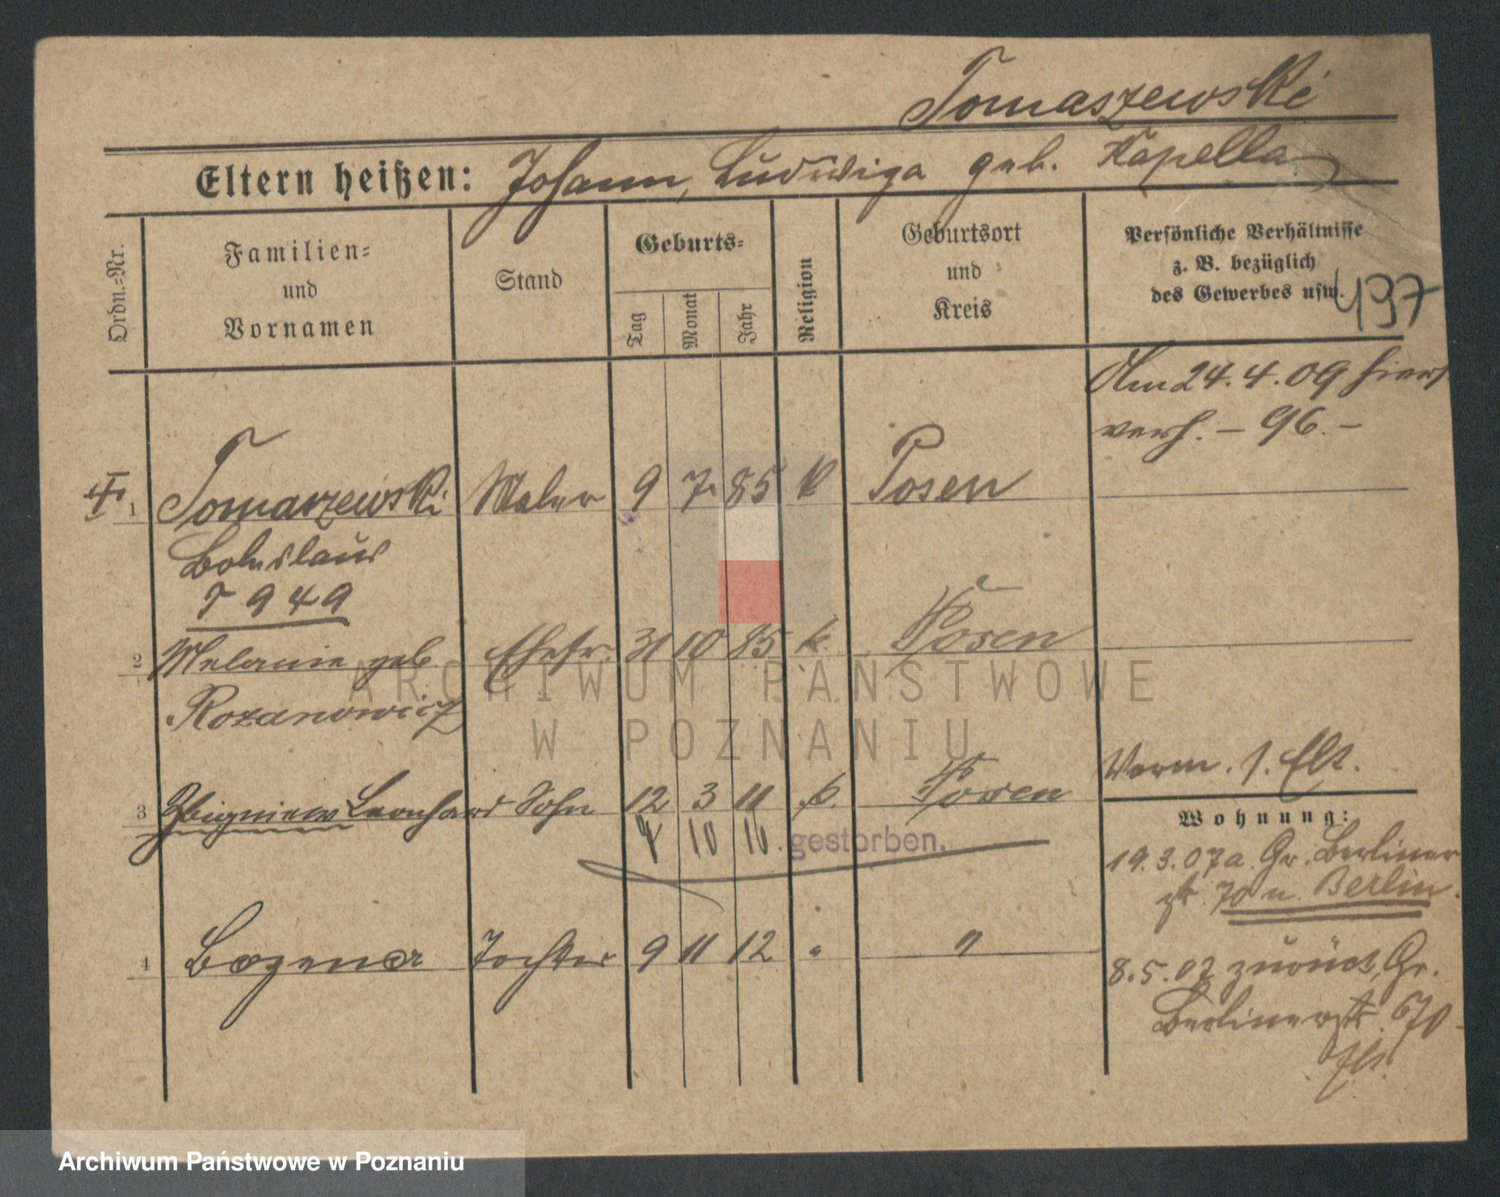 Tomaszewski
Eltern heißen: Johann, Ludwiga geb. Kapella
Ordn.-Nr.
Familien-
und
Vornamen
Stand
Geburts-
Tag
Monat
Jahr
Religion
Geburtsort
und
Kreis
Persönliche Verhältnisse
z. B. bezüglich
des Gewerbes usw.
497
Am 24.4.09 hier
verh. – 96. –
1 Tomaszewski Maler 9 7. 85 k Posen
Boleslaus
T 949
2 Melanie geb. Ehefr. 31 10 85 k. Posen
Rozanowicz
Verm. s. Elt.
3 Zbigniew Leonhard Sohn 12 3 11 k. Posen
4 10 16. gestorben.
Wohnung:
19.3.07 a. Gr. Berliner
str. 70 n. Berlin.
4 Bozena Tochter 9 11 12 " "
8.5.07 zurück, Gr.
Berlinerstr. 70
ARCHIWUM PAŃSTWOWE
W POZNANIU
Archiwum Państwowe w Poznaniu